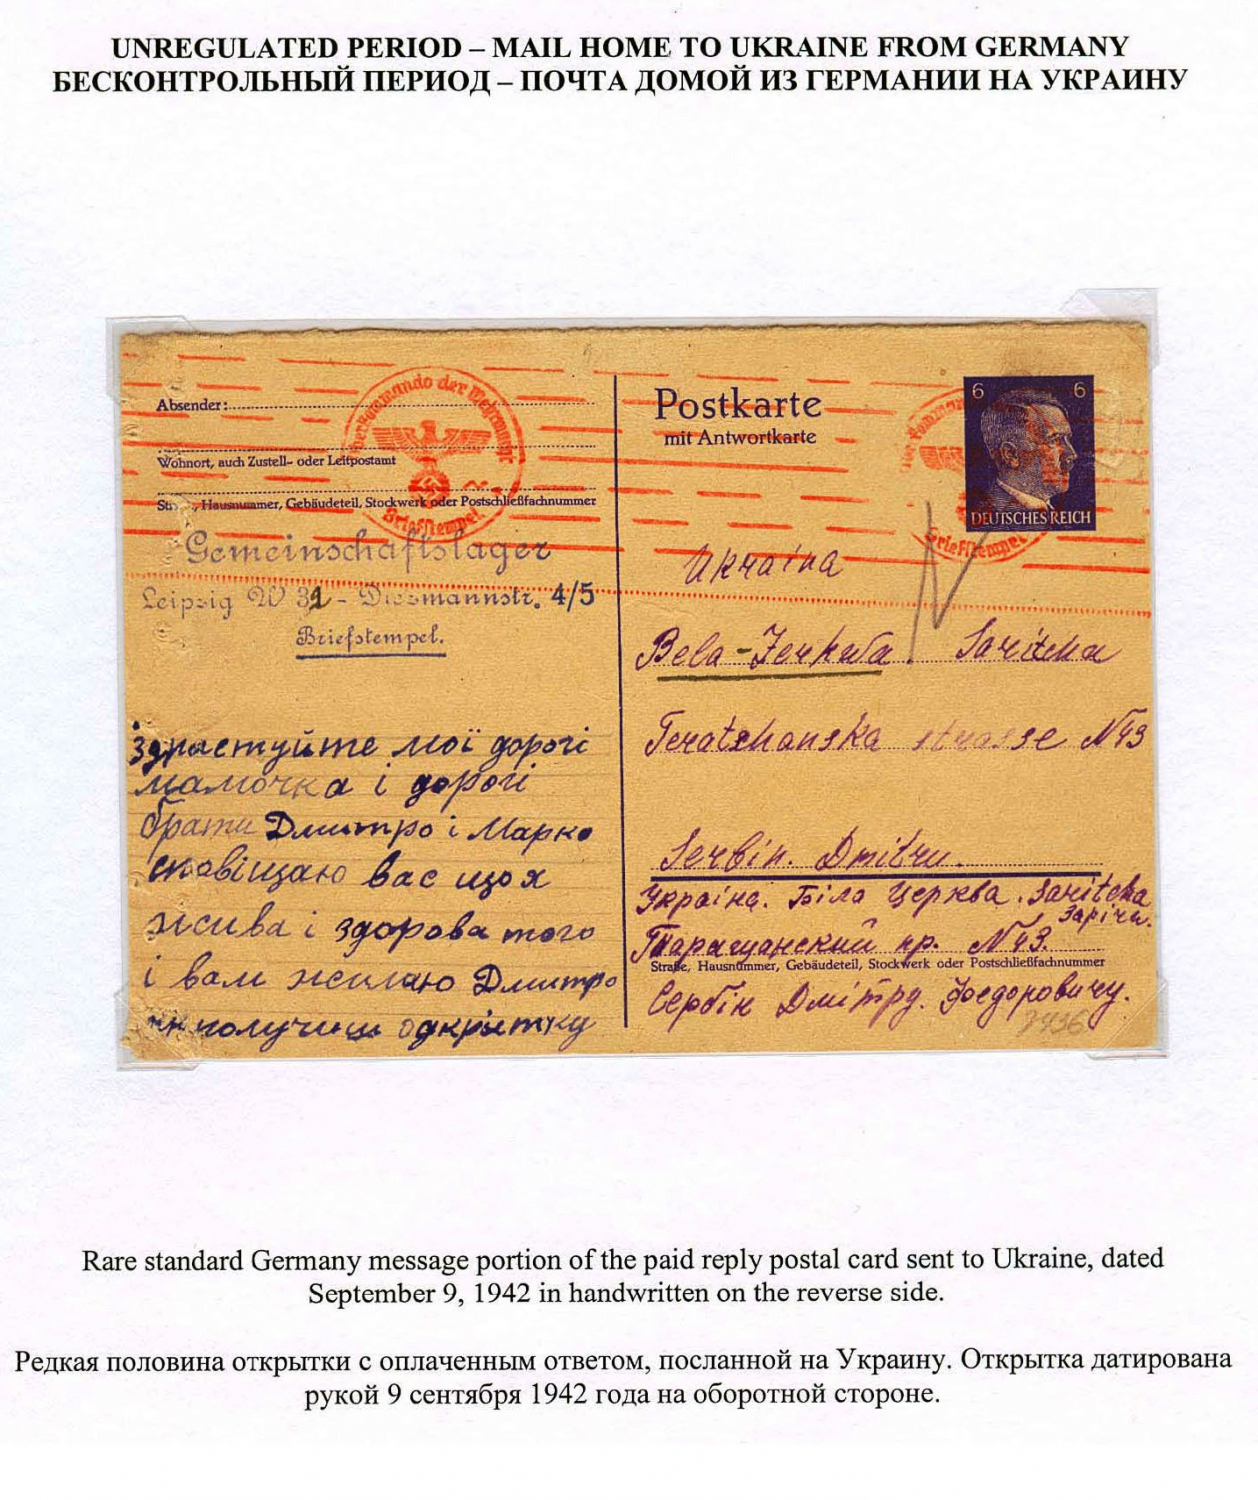 UNREGULATED PERIOD – MAIL HOME TO UKRAINE FROM GERMANY
БЕСКОНТРОЛЬНЫЙ ПЕРИОД – ПОЧТА ДОМОЙ ИЗ ГЕРМАНИИ НА УКРАИНУ
Absender:
Wohnort, auch Zustell- oder Leitpostamt
Hausnummer, Gebäudeteil, Stockwerk oder Postschließfachnummer
der Wehrmacht
Briefstempel
Gemeinschaftslager
Leipzig W 31 - Diezmannstr. 4/5
Briefstempel.
здраствуйте мої дорогі
мамочка і дорогі
брати Дмитро і Марко
сповіщаю вас що я
жива і здорова того
і вам желаю Дмитро
получиш одкритку
Postkarte
mit Antwortkarte
6 6
DEUTSCHES REICH
Briefstempel
Ukraina
Bela-Zerkwa. Saritska
Taratshanska strasse N43
Serbin. Dmitru.
Україна. Біла Церква. Saritska
Заріч.
Таращанский пр. N43.
Straße, Hausnummer, Gebäudeteil, Stockwerk oder Postschließfachnummer
Сербін Дмітру. Фоедоровичу.
Rare standard Germany message portion of the paid reply postal card sent to Ukraine, dated
September 9, 1942 in handwritten on the reverse side.
Редкая половина открытки с оплаченным ответом, посланной на Украину. Открытка датирована
рукой 9 сентября 1942 года на оборотной стороне.